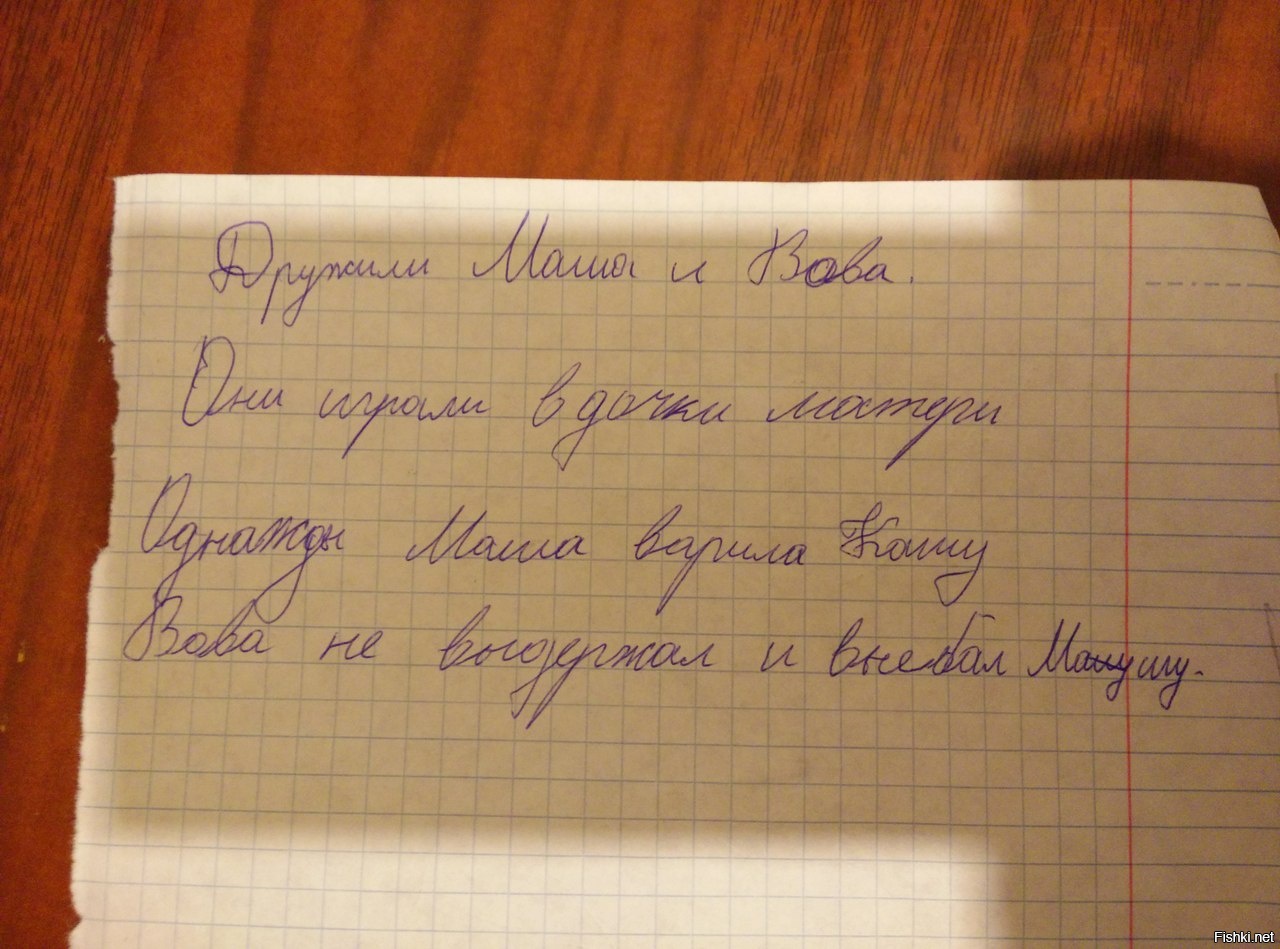 Дружили Маша и Вова.
Они играли в дочки матери
Однажды Маша варила Кашу
Вова не выдержал и выебал
Fishki.net